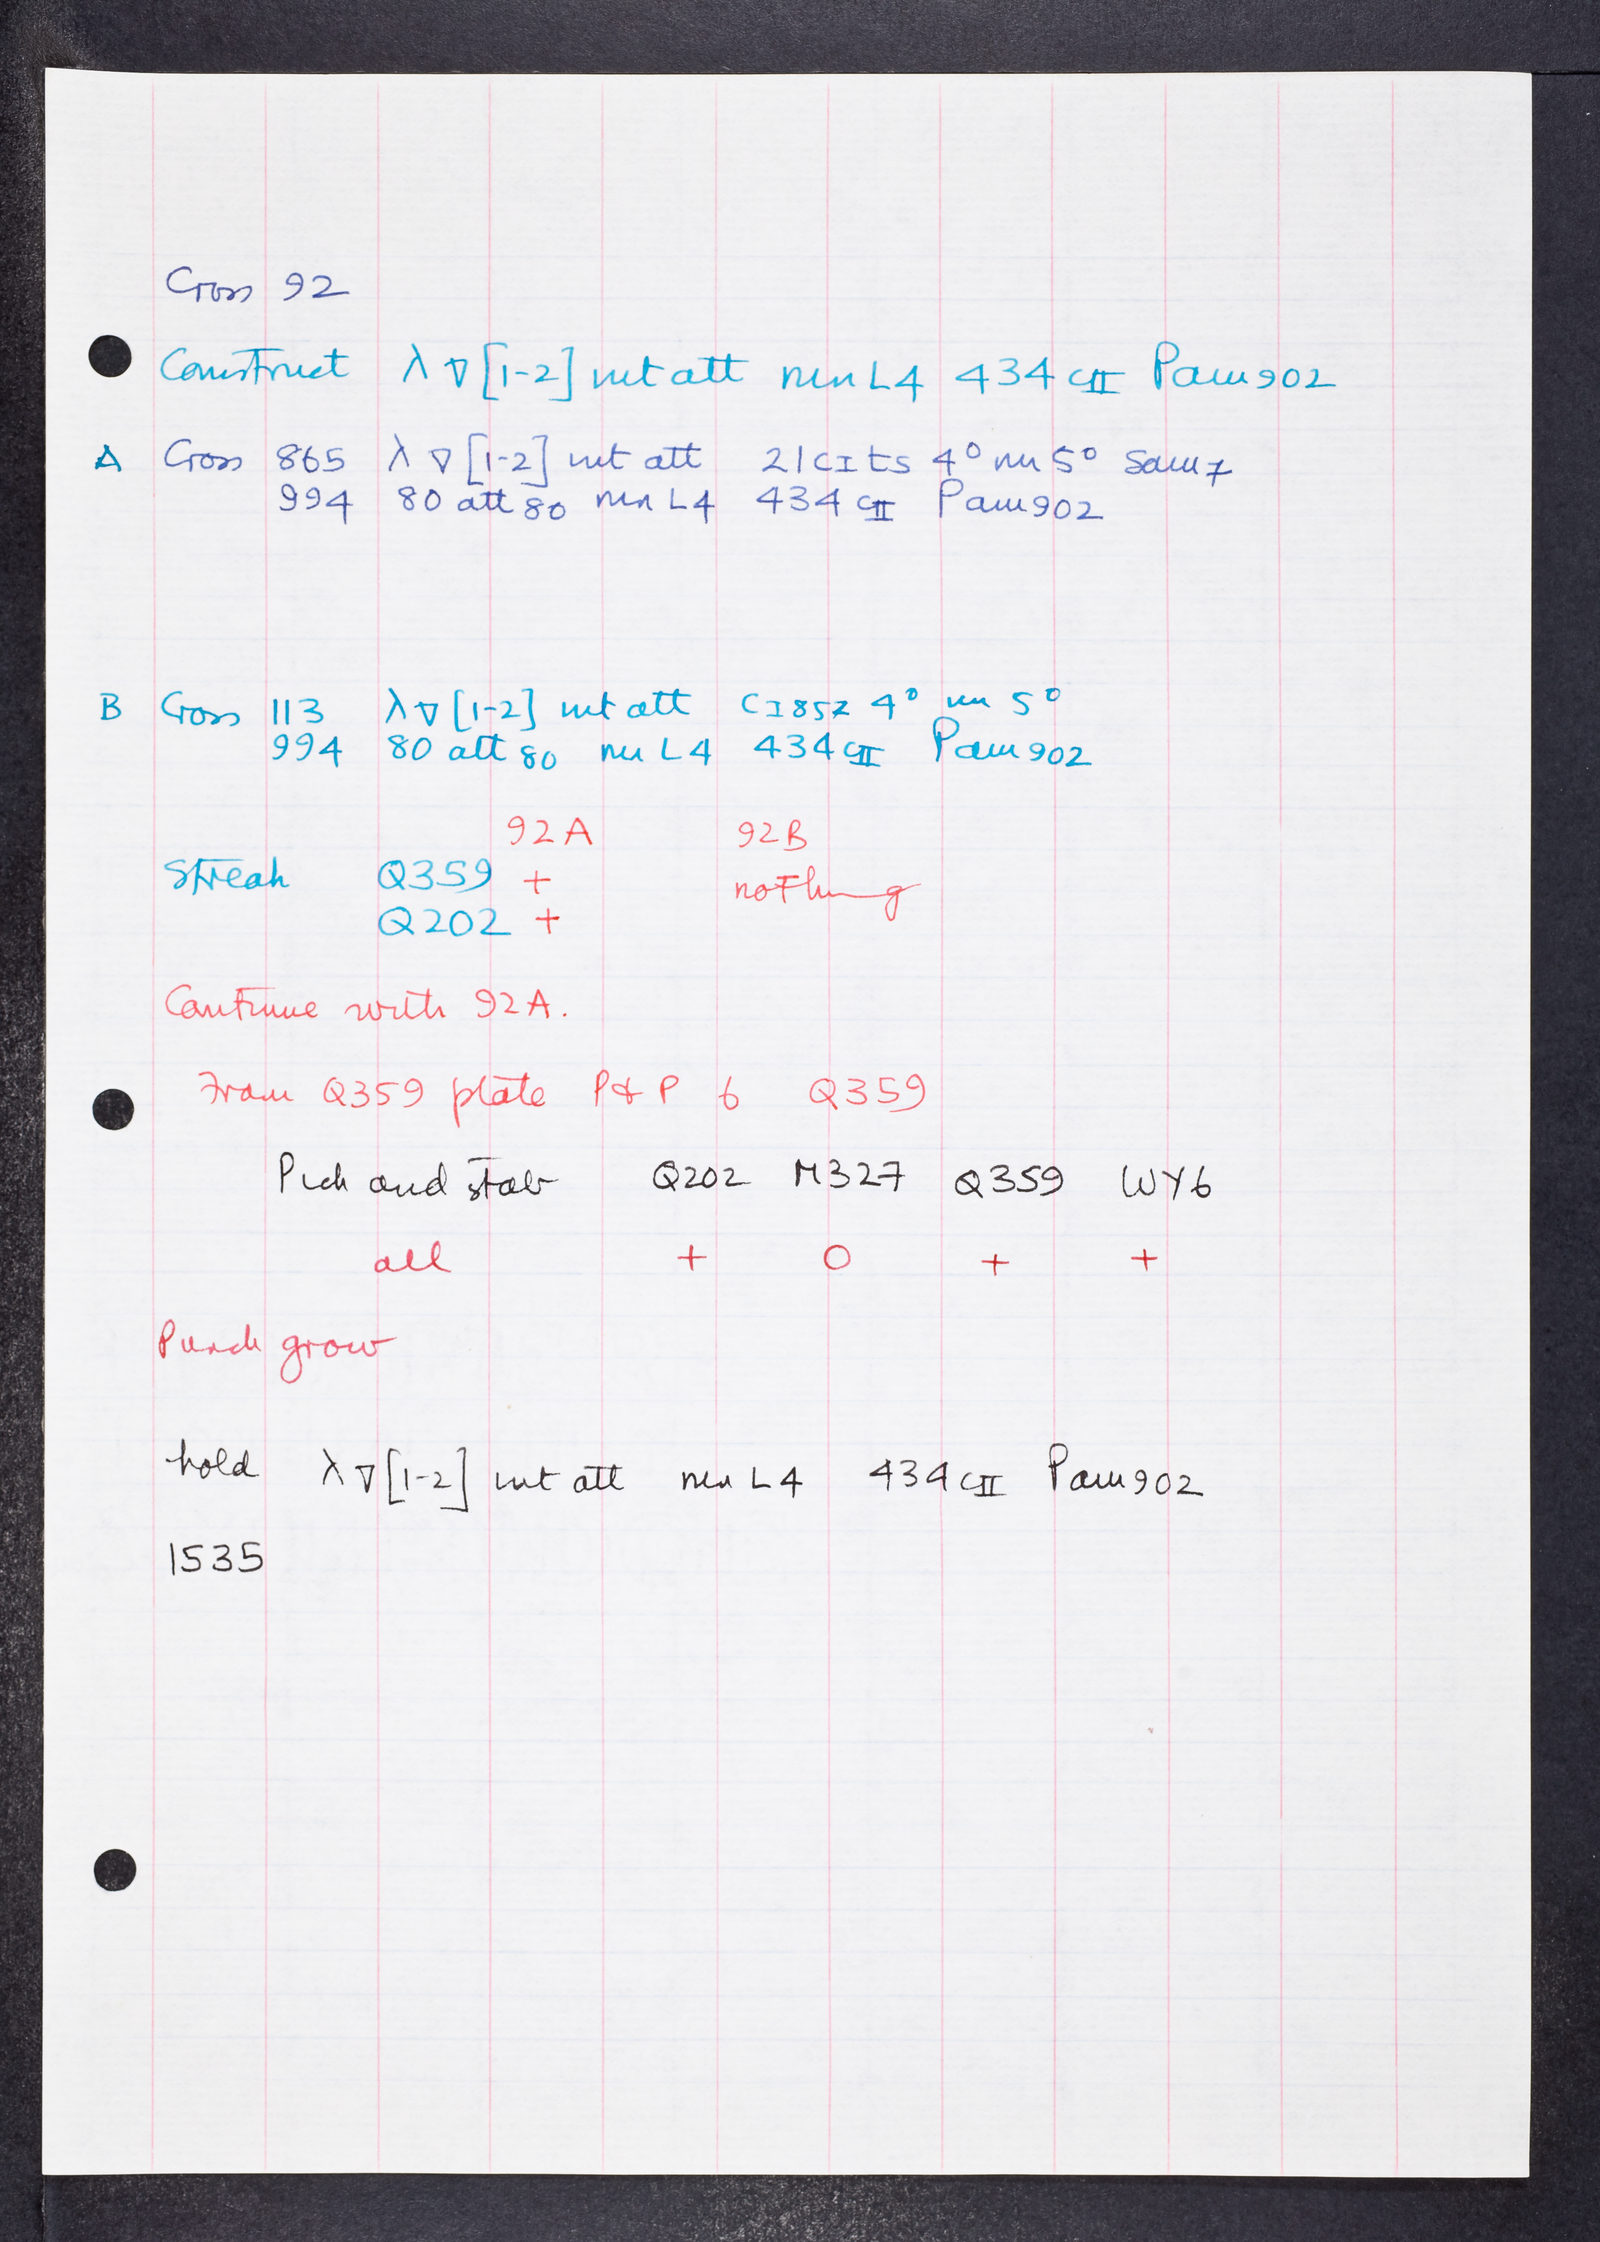 Cross 92
Construct λ ∇ [1-2] int att nin L4 434 cII Pam902
A Cross 865 λ ∇ [1-2] int att 21 cI ts 4° nin 5° Sam7
994 80 att 80 nin L4 434 cII Pam902
B Cross 113 λ ∇ [1-2] int att CI857 4° nin 5°
994 80 att 80 nin L4 434 cII Pam902
92A 92B
Streak Q359 + nothing
Q202 +
Continue with 92A.
From Q359 plate P & P 6 Q359
Pick and stab Q202 M327 Q359 WY6
all + O + +
Punch grow
hold λ ∇ [1-2] int att nin L4 434 cII Pam902
1535